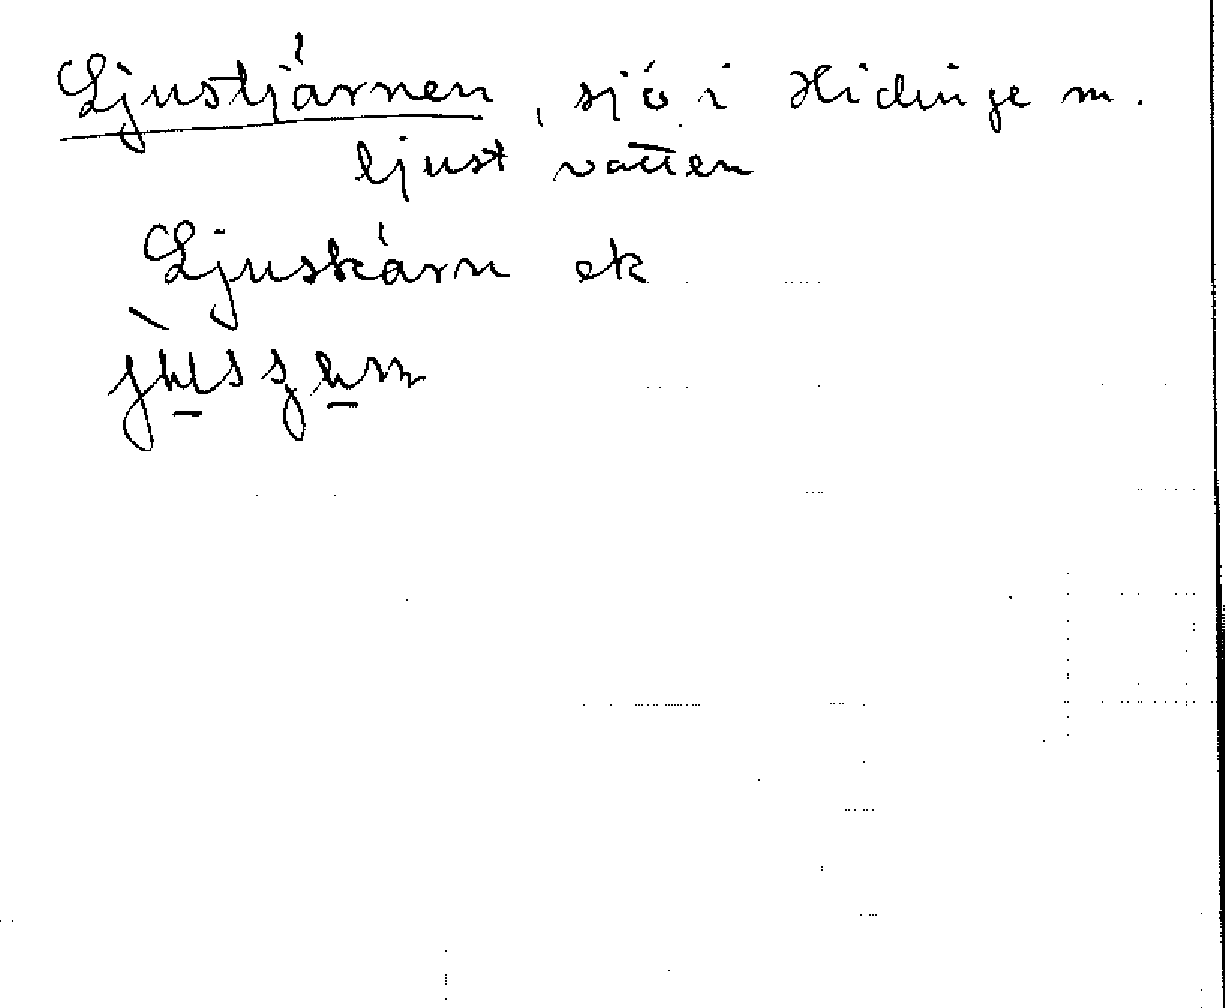 Ljustjärnen, sjö i Hidinge m.
ljust vatten
Ljuskärn ek